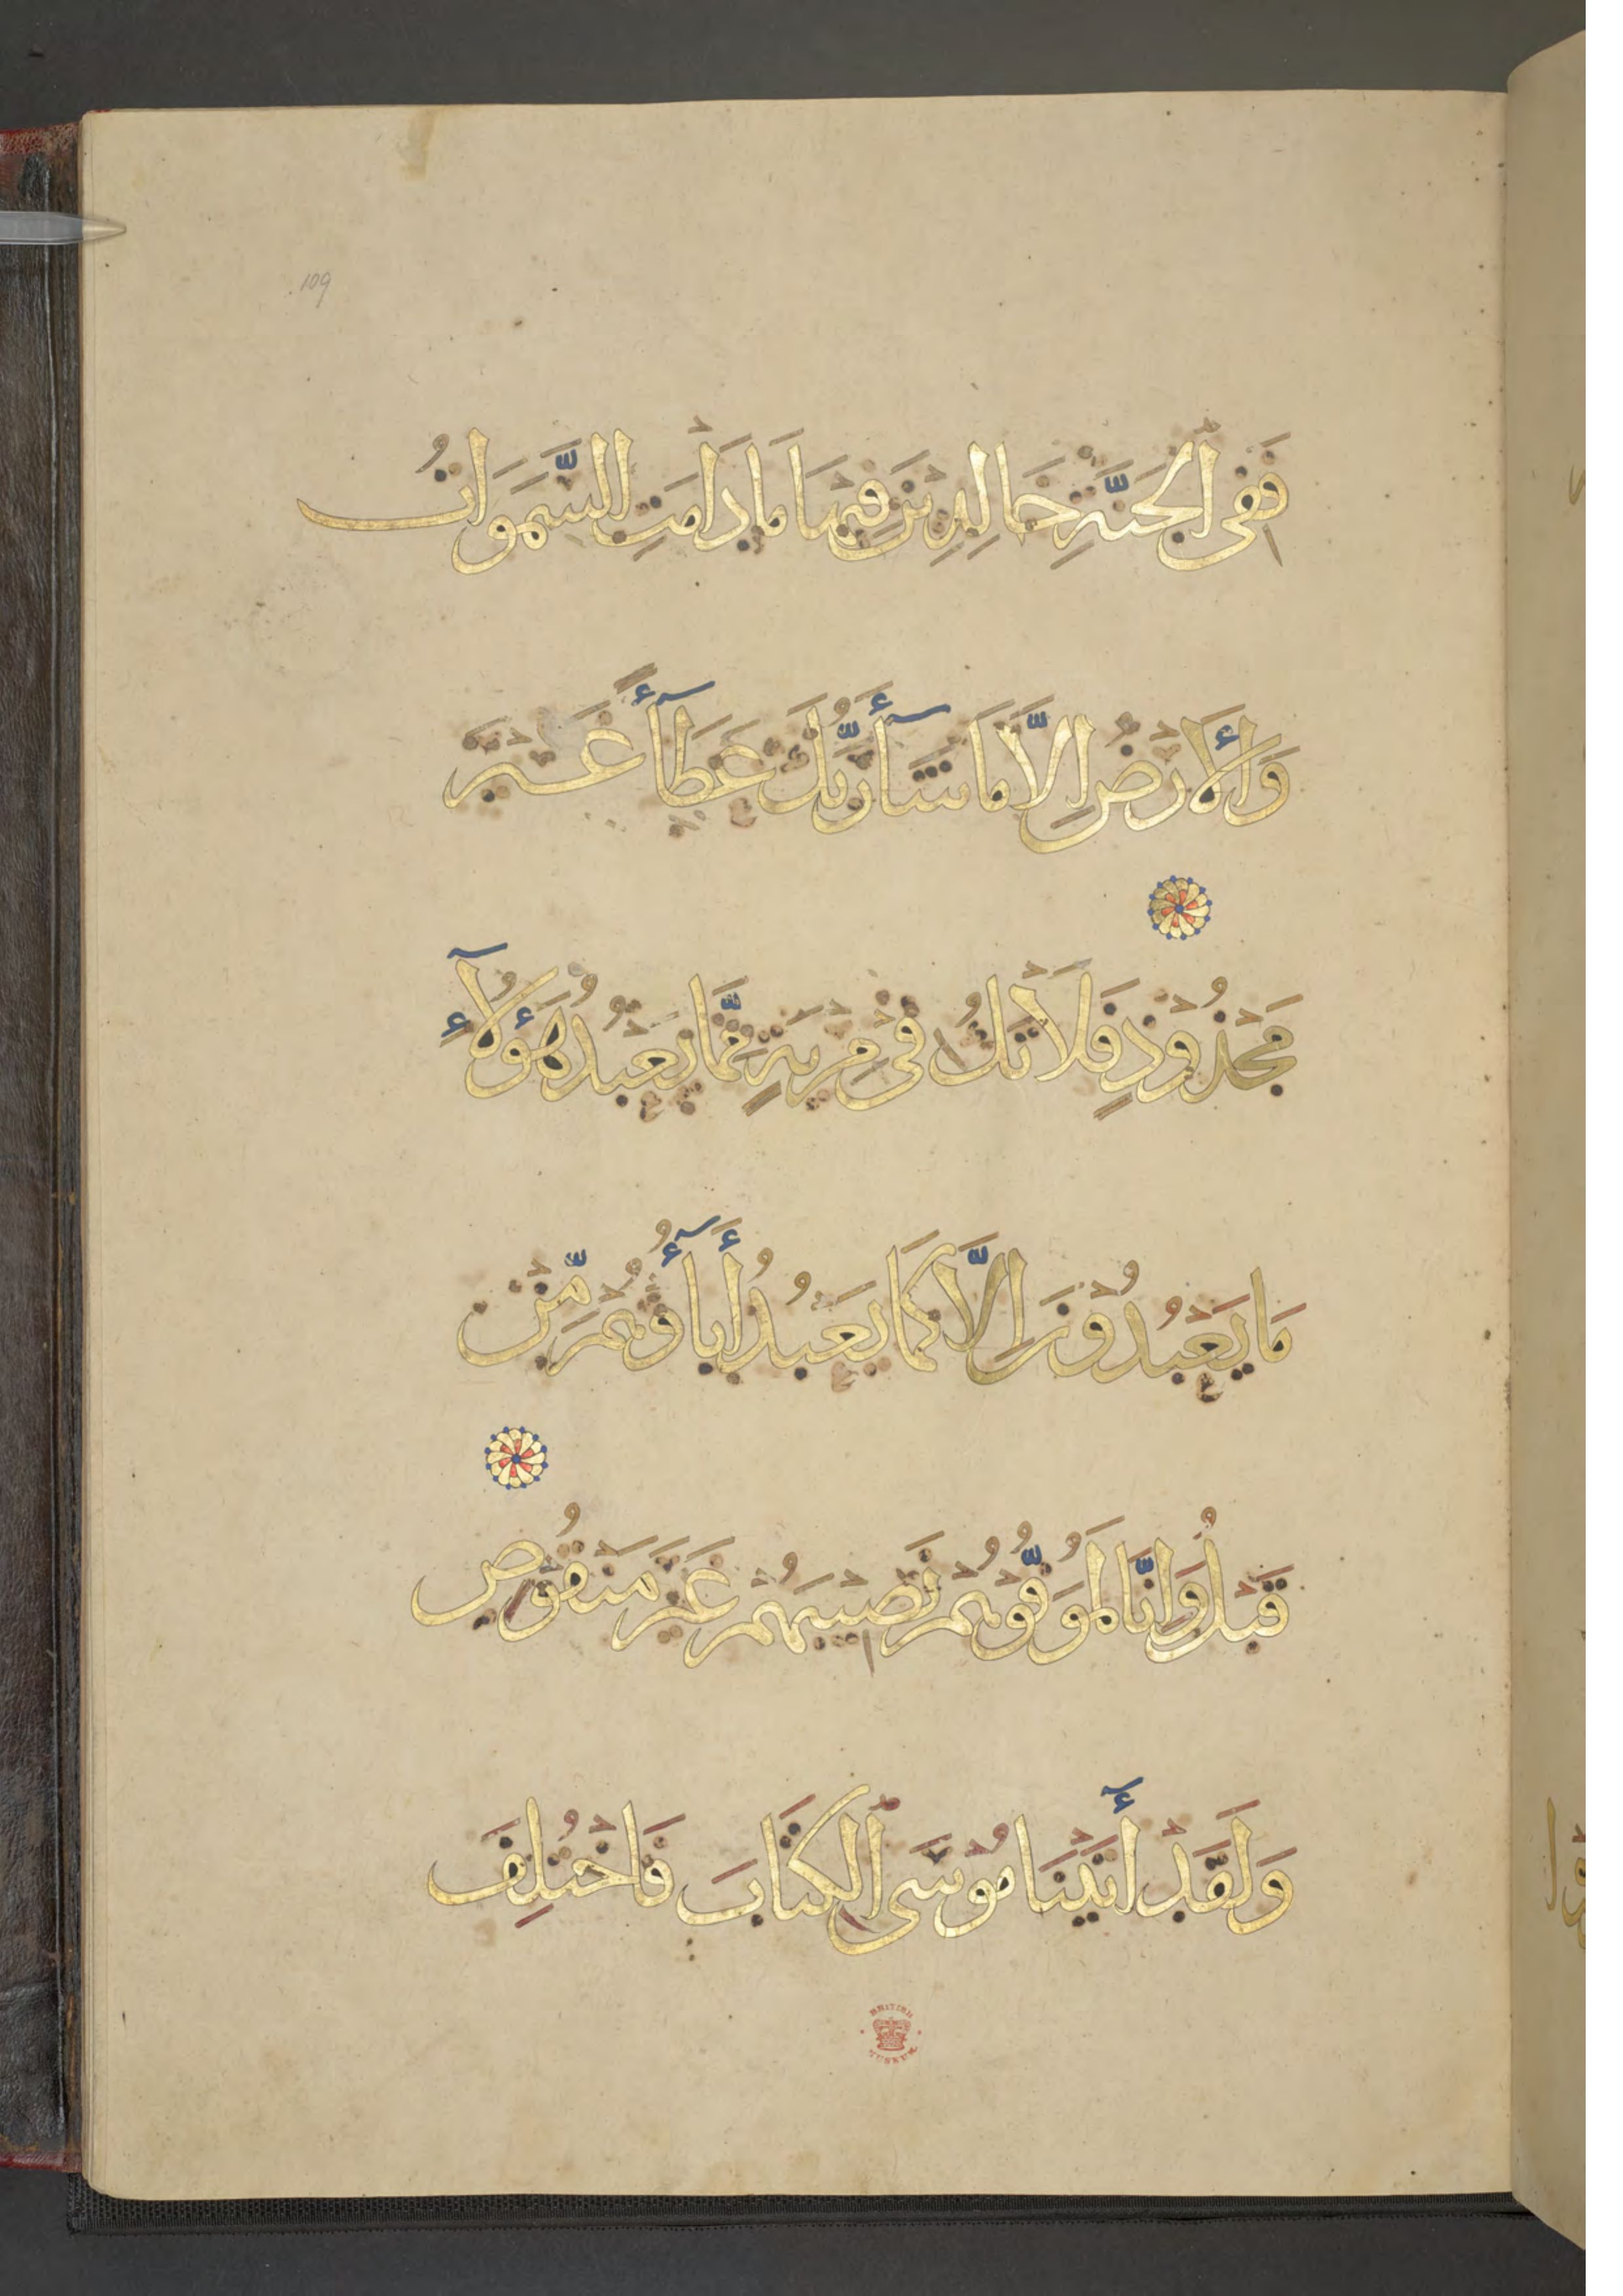 109
فَفِي ٱلْجَنَّةِ خَالِدِينَ فِيهَا مَا دَامَتِ السَّمَوَاتُ
وَالْأَرْضِ إِلَّا مَا شَآءَ رَبُّكَ عَطَآءً غَيْرَ
مَجْذُوْذٍ فَلَا تَكُ فِيْ مِرْيَةٍ مِمَّا يَعْبُدُ هَؤُلَآءِ
مَا يَعْبُدُوْنَ اِلَّا كَمَا يَعْبُدُ أَبَآؤُهُمْ مِّنْ
قَبْلُ وَاِنَّا لَمُوَفُّوْهُمْ نَصِيبَهُمْ غَيْرَ مَنْقُوْصٍ
وَلَقَدْ أٓتَيْنَا مُوْسَى ٱلْكِتَابَ فَاخْتُلِفَ
BRITISH MUSEUM